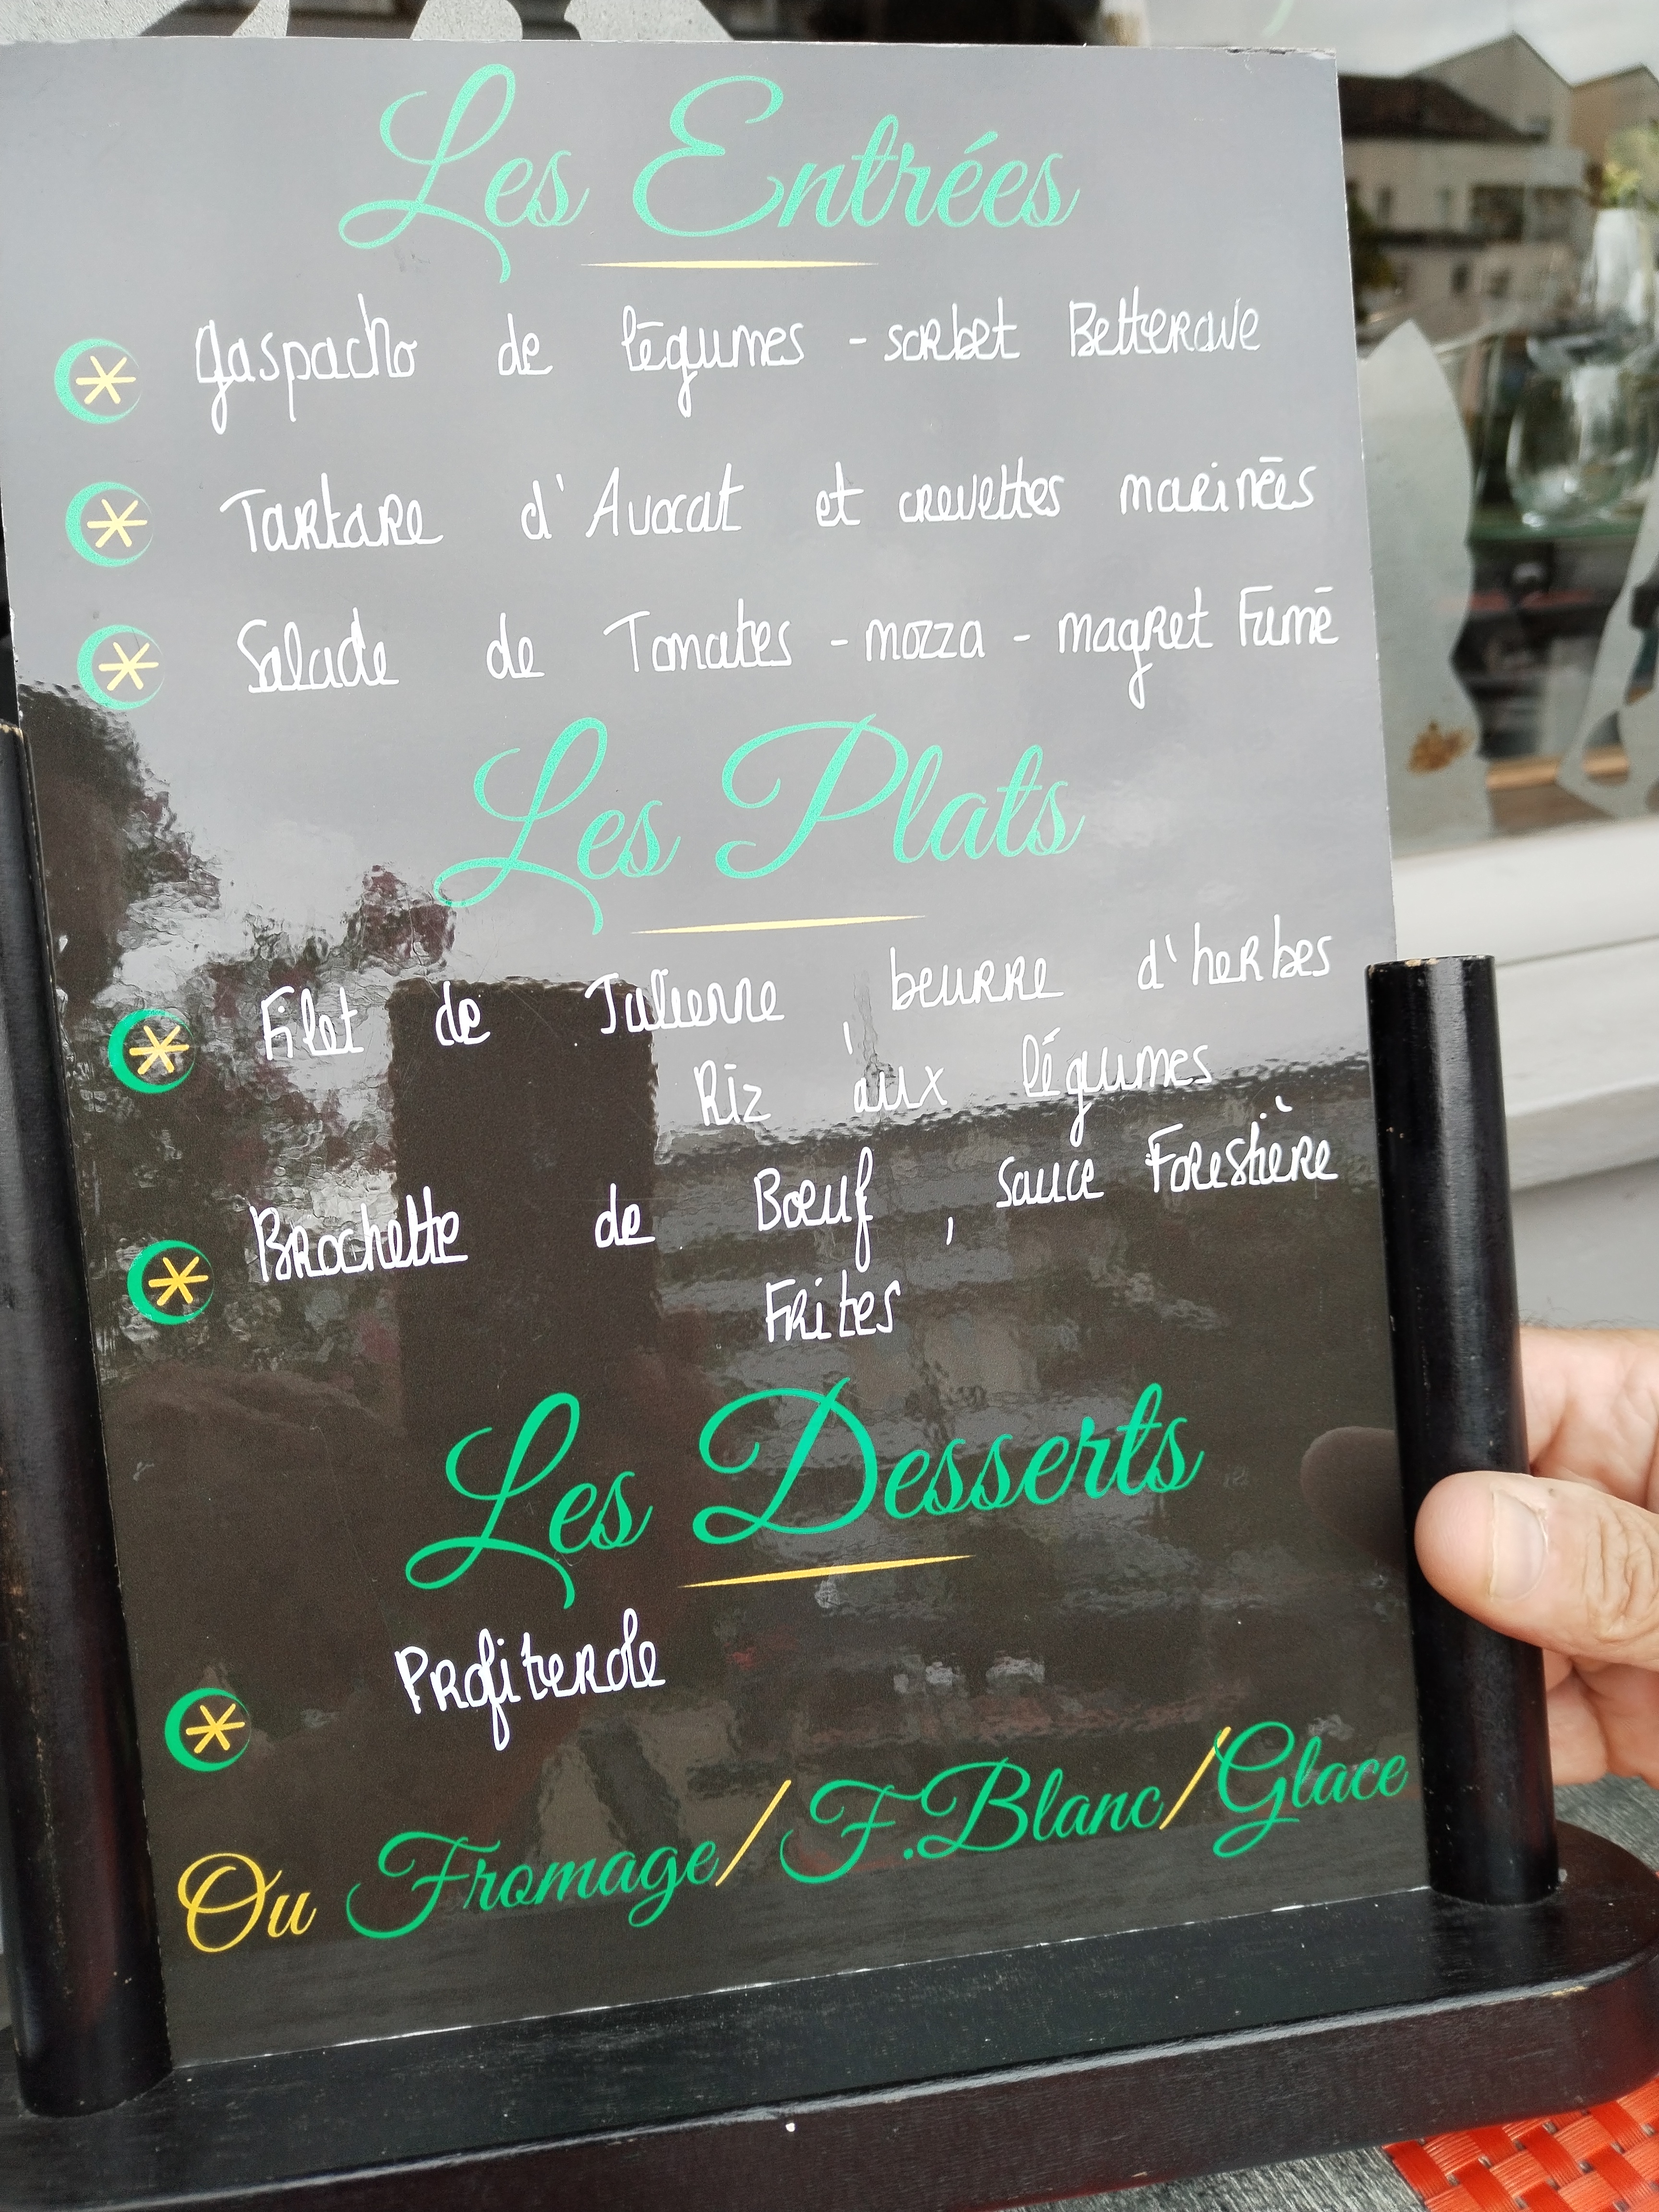 Les Entrées
Gaspacho de légumes - sorbet Betterave
Tartare d'Avocat et crevettes marinées
Salade de Tomates - mozza - magret Fumé
Les Plats
Filet de Julienne, beurre d'herbes
Riz aux légumes
Brochette de Boeuf, sauce Forestière
Frites
Les Desserts
Profiterole
Ou Fromage/F.Blanc/Glace